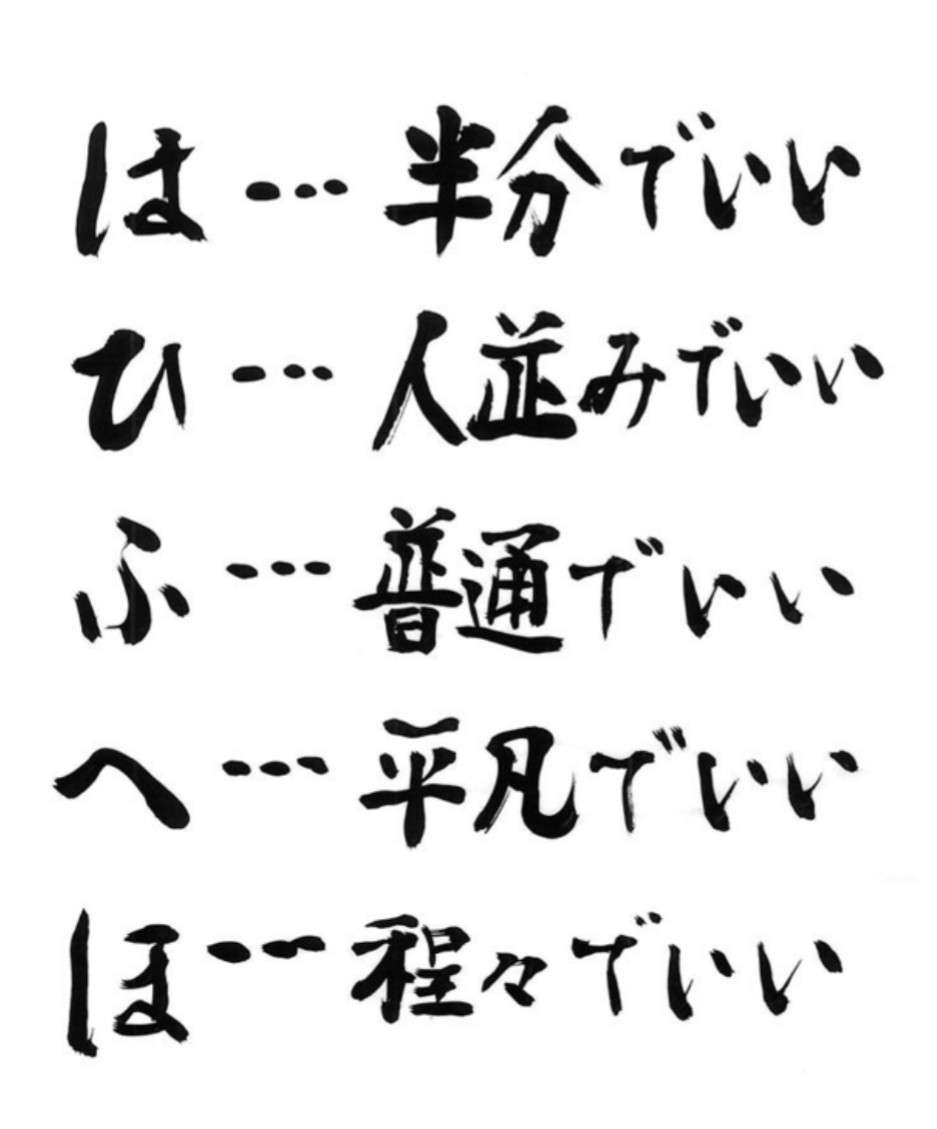 は…半分でいい
ひ…人並みでいい
ふ…普通でいい
へ…平凡でいい
ほ…程々でいい